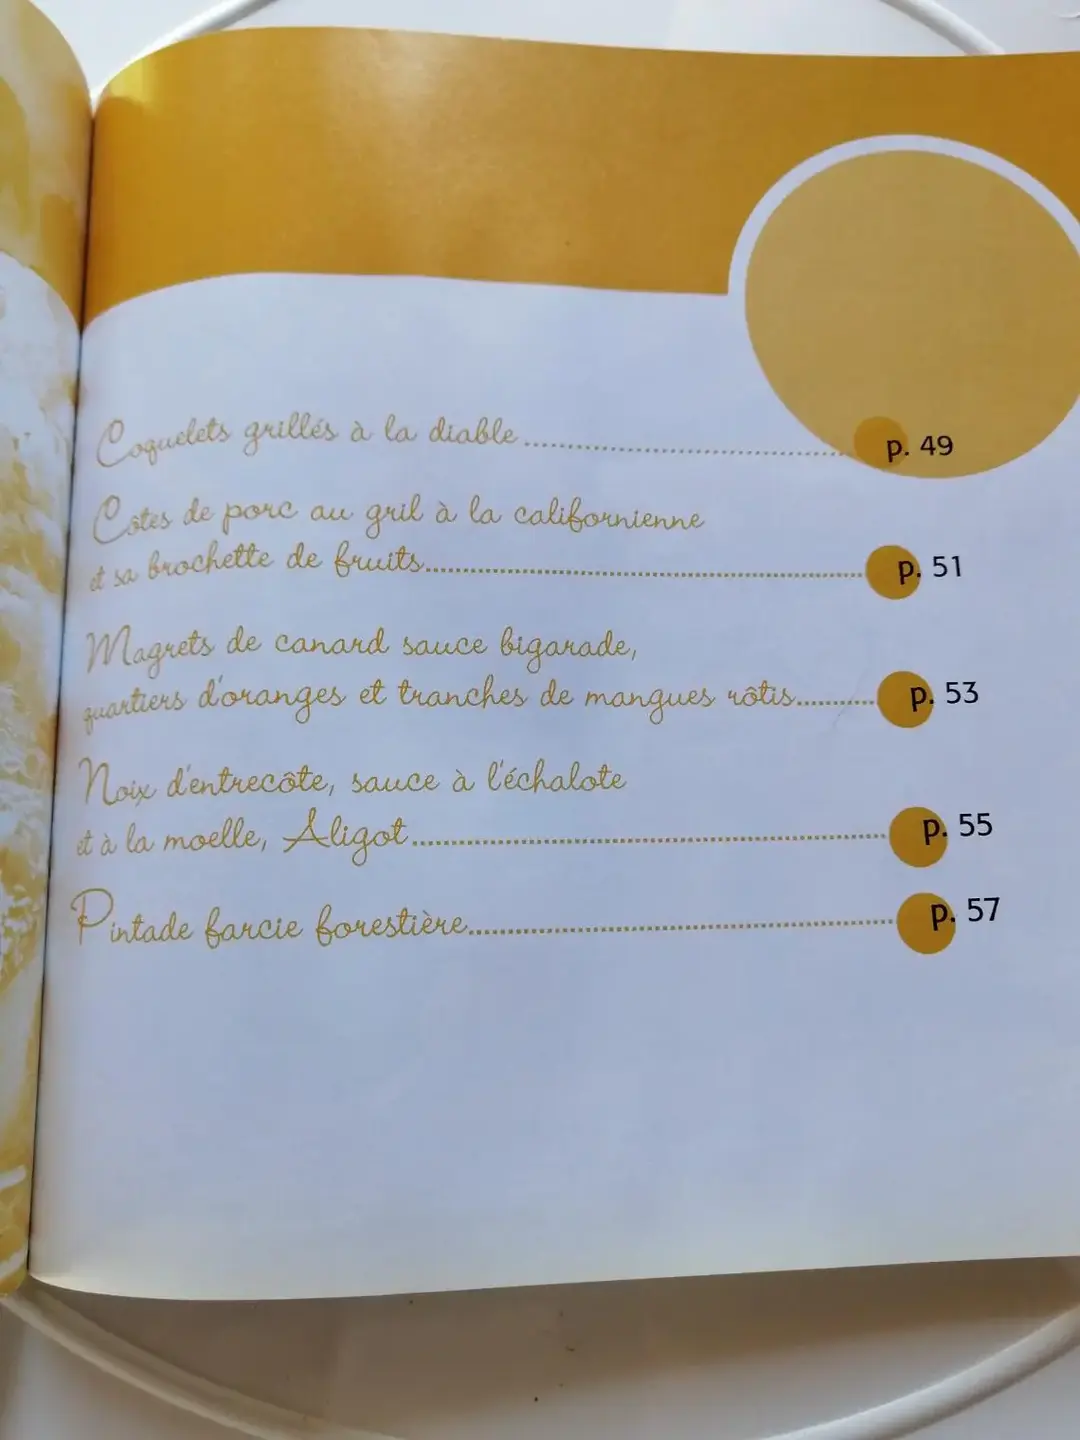 Coquelets grillés à la diable p. 49
Côtes de porc au gril à la californienne
et sa brochette de fruits p. 51
Magrets de canard sauce bigarade,
quartiers d'oranges et tranches de mangues rôtis p. 53
Noix d'entrecôte, sauce à l'échalote
et à la moelle, Aligot p. 55
Pintade farcie forestière p. 57